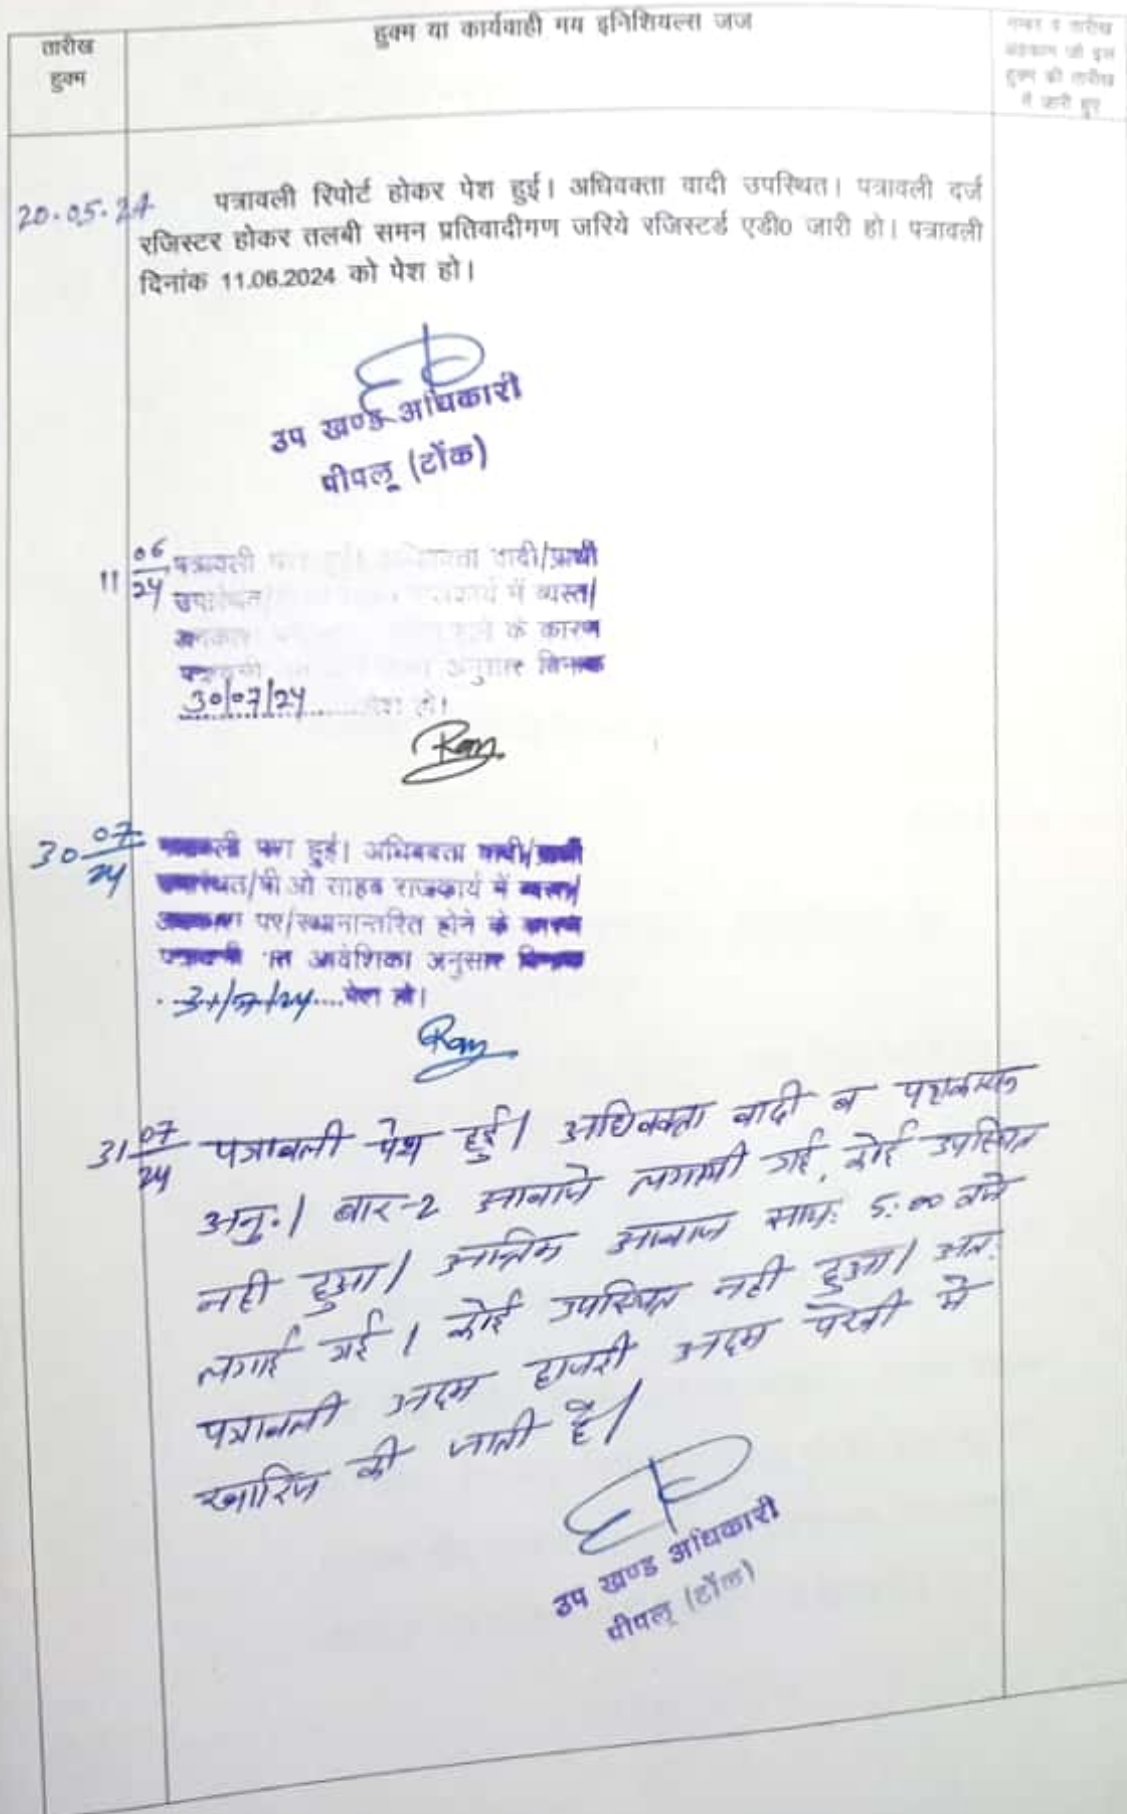 तारीख
हुक्म
हुक्म या कार्यवाही मय इनिशियल्स जज
नम्बर व तारीख
अहकाम जो इस
हुक्म की तारीख
में जारी हुए
20.05.24
पत्रावली रिपोर्ट होकर पेश हुई। अधिवक्ता वादी उपस्थित। पत्रावली दर्ज
रजिस्टर होकर तलबी समन प्रतिवादीगण जरिये रजिस्टर्ड एडी0 जारी हो। पत्रावली
दिनांक 11.06.2024 को पेश हो।
उप खण्ड अधिकारी
पीपलू (टोंक)
11 06/24
पत्रावली वादी/प्रार्थी
में व्यस्त/
के कारण
अनुसार दिनांक
30/07/24 पेश हो।
Ram
30 07/24
पत्रावली पेश हुई। अधिवक्ता वादी/प्रार्थी
उपस्थित/पी ओ साहब राजकार्य में व्यस्त/
अवकाश पर/स्थानान्तरित होने के कारण
पत्रावली आदेशिका अनुसार दिनांक
31/07/24....पेश हो।
Ram
31 07/24
पत्रावली पेश हुई। अधिवक्ता वादी व
अनु.। बार-2 आवाजे लगायी गई, कोई उपस्थित
नही हुआ। अन्तिम आवाज सायं: 5:00 बजे
लगाई गई। कोई उपस्थित नही हुआ। अत:
पत्रावली अदम हाजरी अदम पैरवी मे
खारिज की जाती है।
उप खण्ड अधिकारी
पीपलू (टोंक)